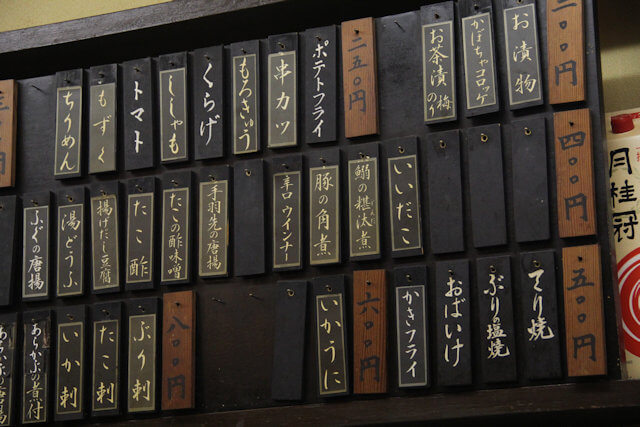 〇〇円
お漬物
かぼちゃコロッケ
お茶漬梅のり
二五〇円
ポテトフライ
串カツ
もろきゅう
くらげ
ししゃも
トマト
もずく
ちりめん
四〇〇円
いいだこ
鰯の糂汰煮
豚の角煮
辛口ウインナー
手羽先の唐揚
たこの酢味噌
たこ酢
揚げだし豆腐
湯どうふ
ふぐの唐揚
五〇〇円
てり焼
ぶりの塩焼
おばいけ
かきフライ
六〇〇円
いかうに
八〇〇円
ぶり刺
たこ刺
いか刺
あらかぶの煮付
月桂冠